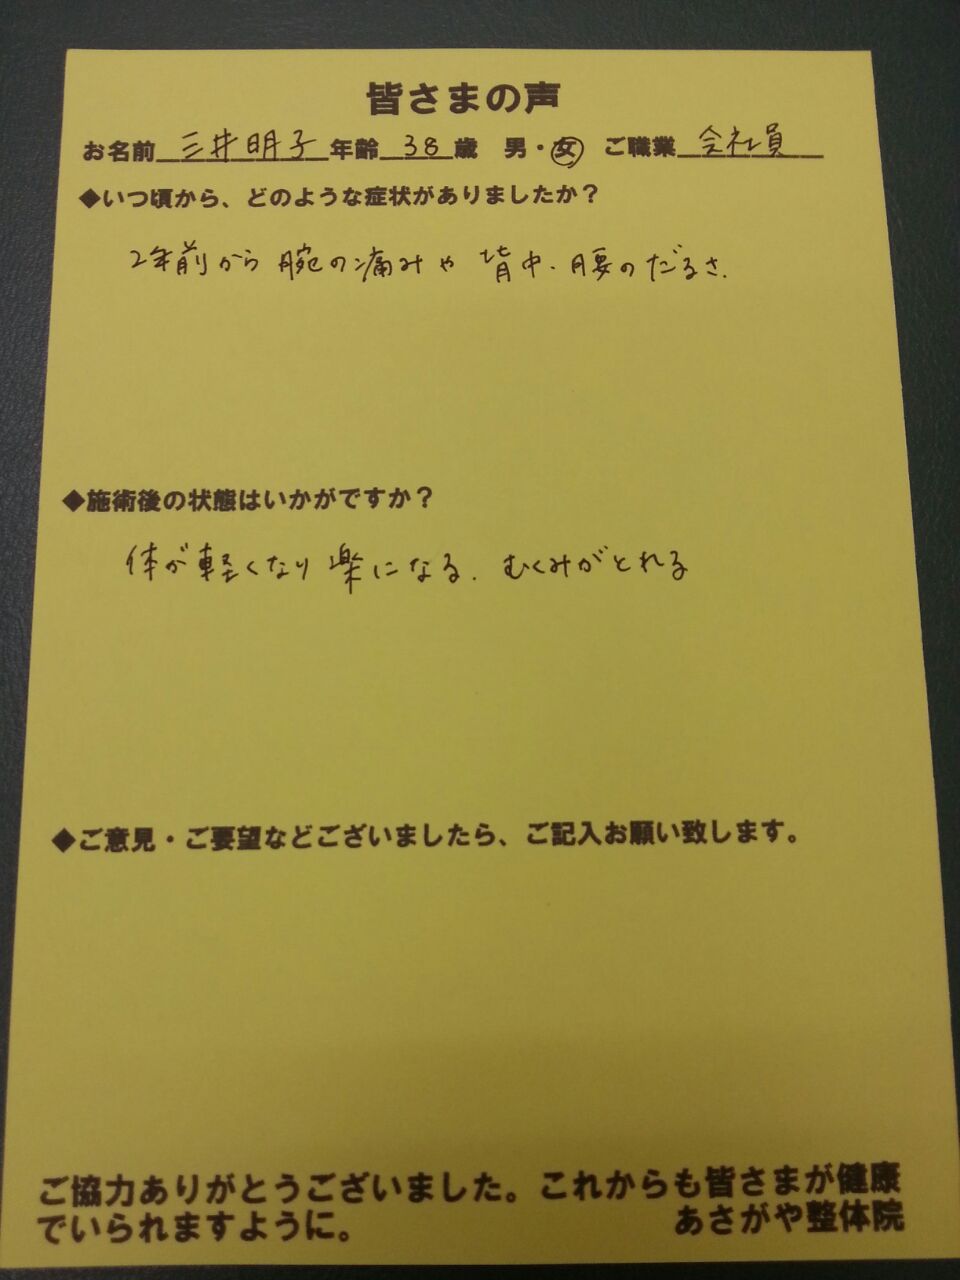 皆さまの声
お名前 三井明子 年齢 38 歳 男・女 ご職業 会社員
◆いつ頃から、どのような症状がありましたか？
2年前から腕の痛みや 背中・腰のだるさ.
◆施術後の状態はいかがですか？
体が軽くなり楽になる. むくみがとれる
◆ご意見・ご要望などございましたら、ご記入お願い致します。
ご協力ありがとうございました。これからも皆さまが健康
でいられますように。 あさがや整体院